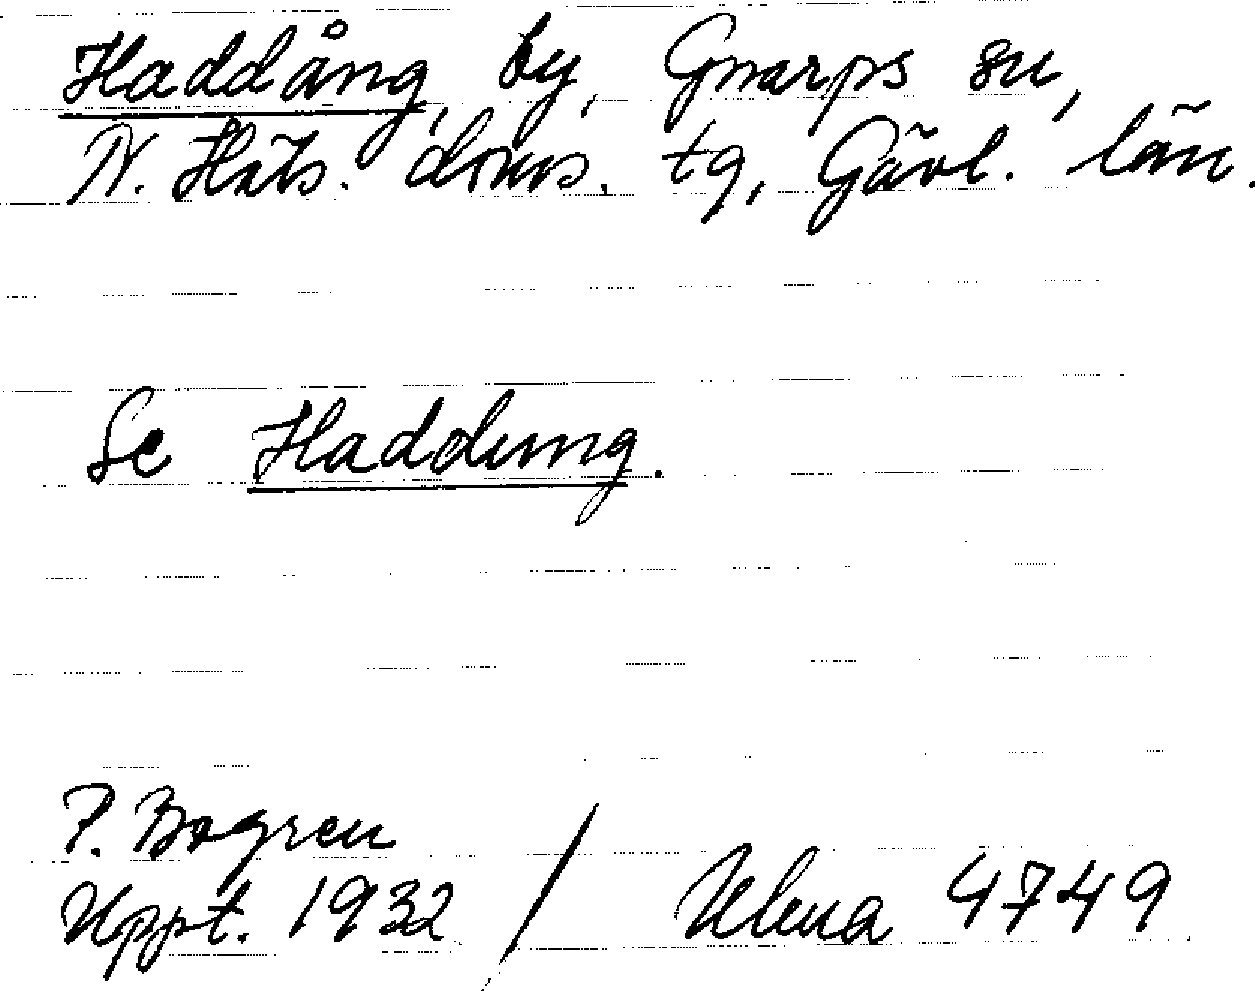 Haddång, by, Gnarps sn,
N. Häls. doms. tg, Gävl. län.
Se Haddung.
P. Bogren
Uppt. 1932 / Ulma 4749